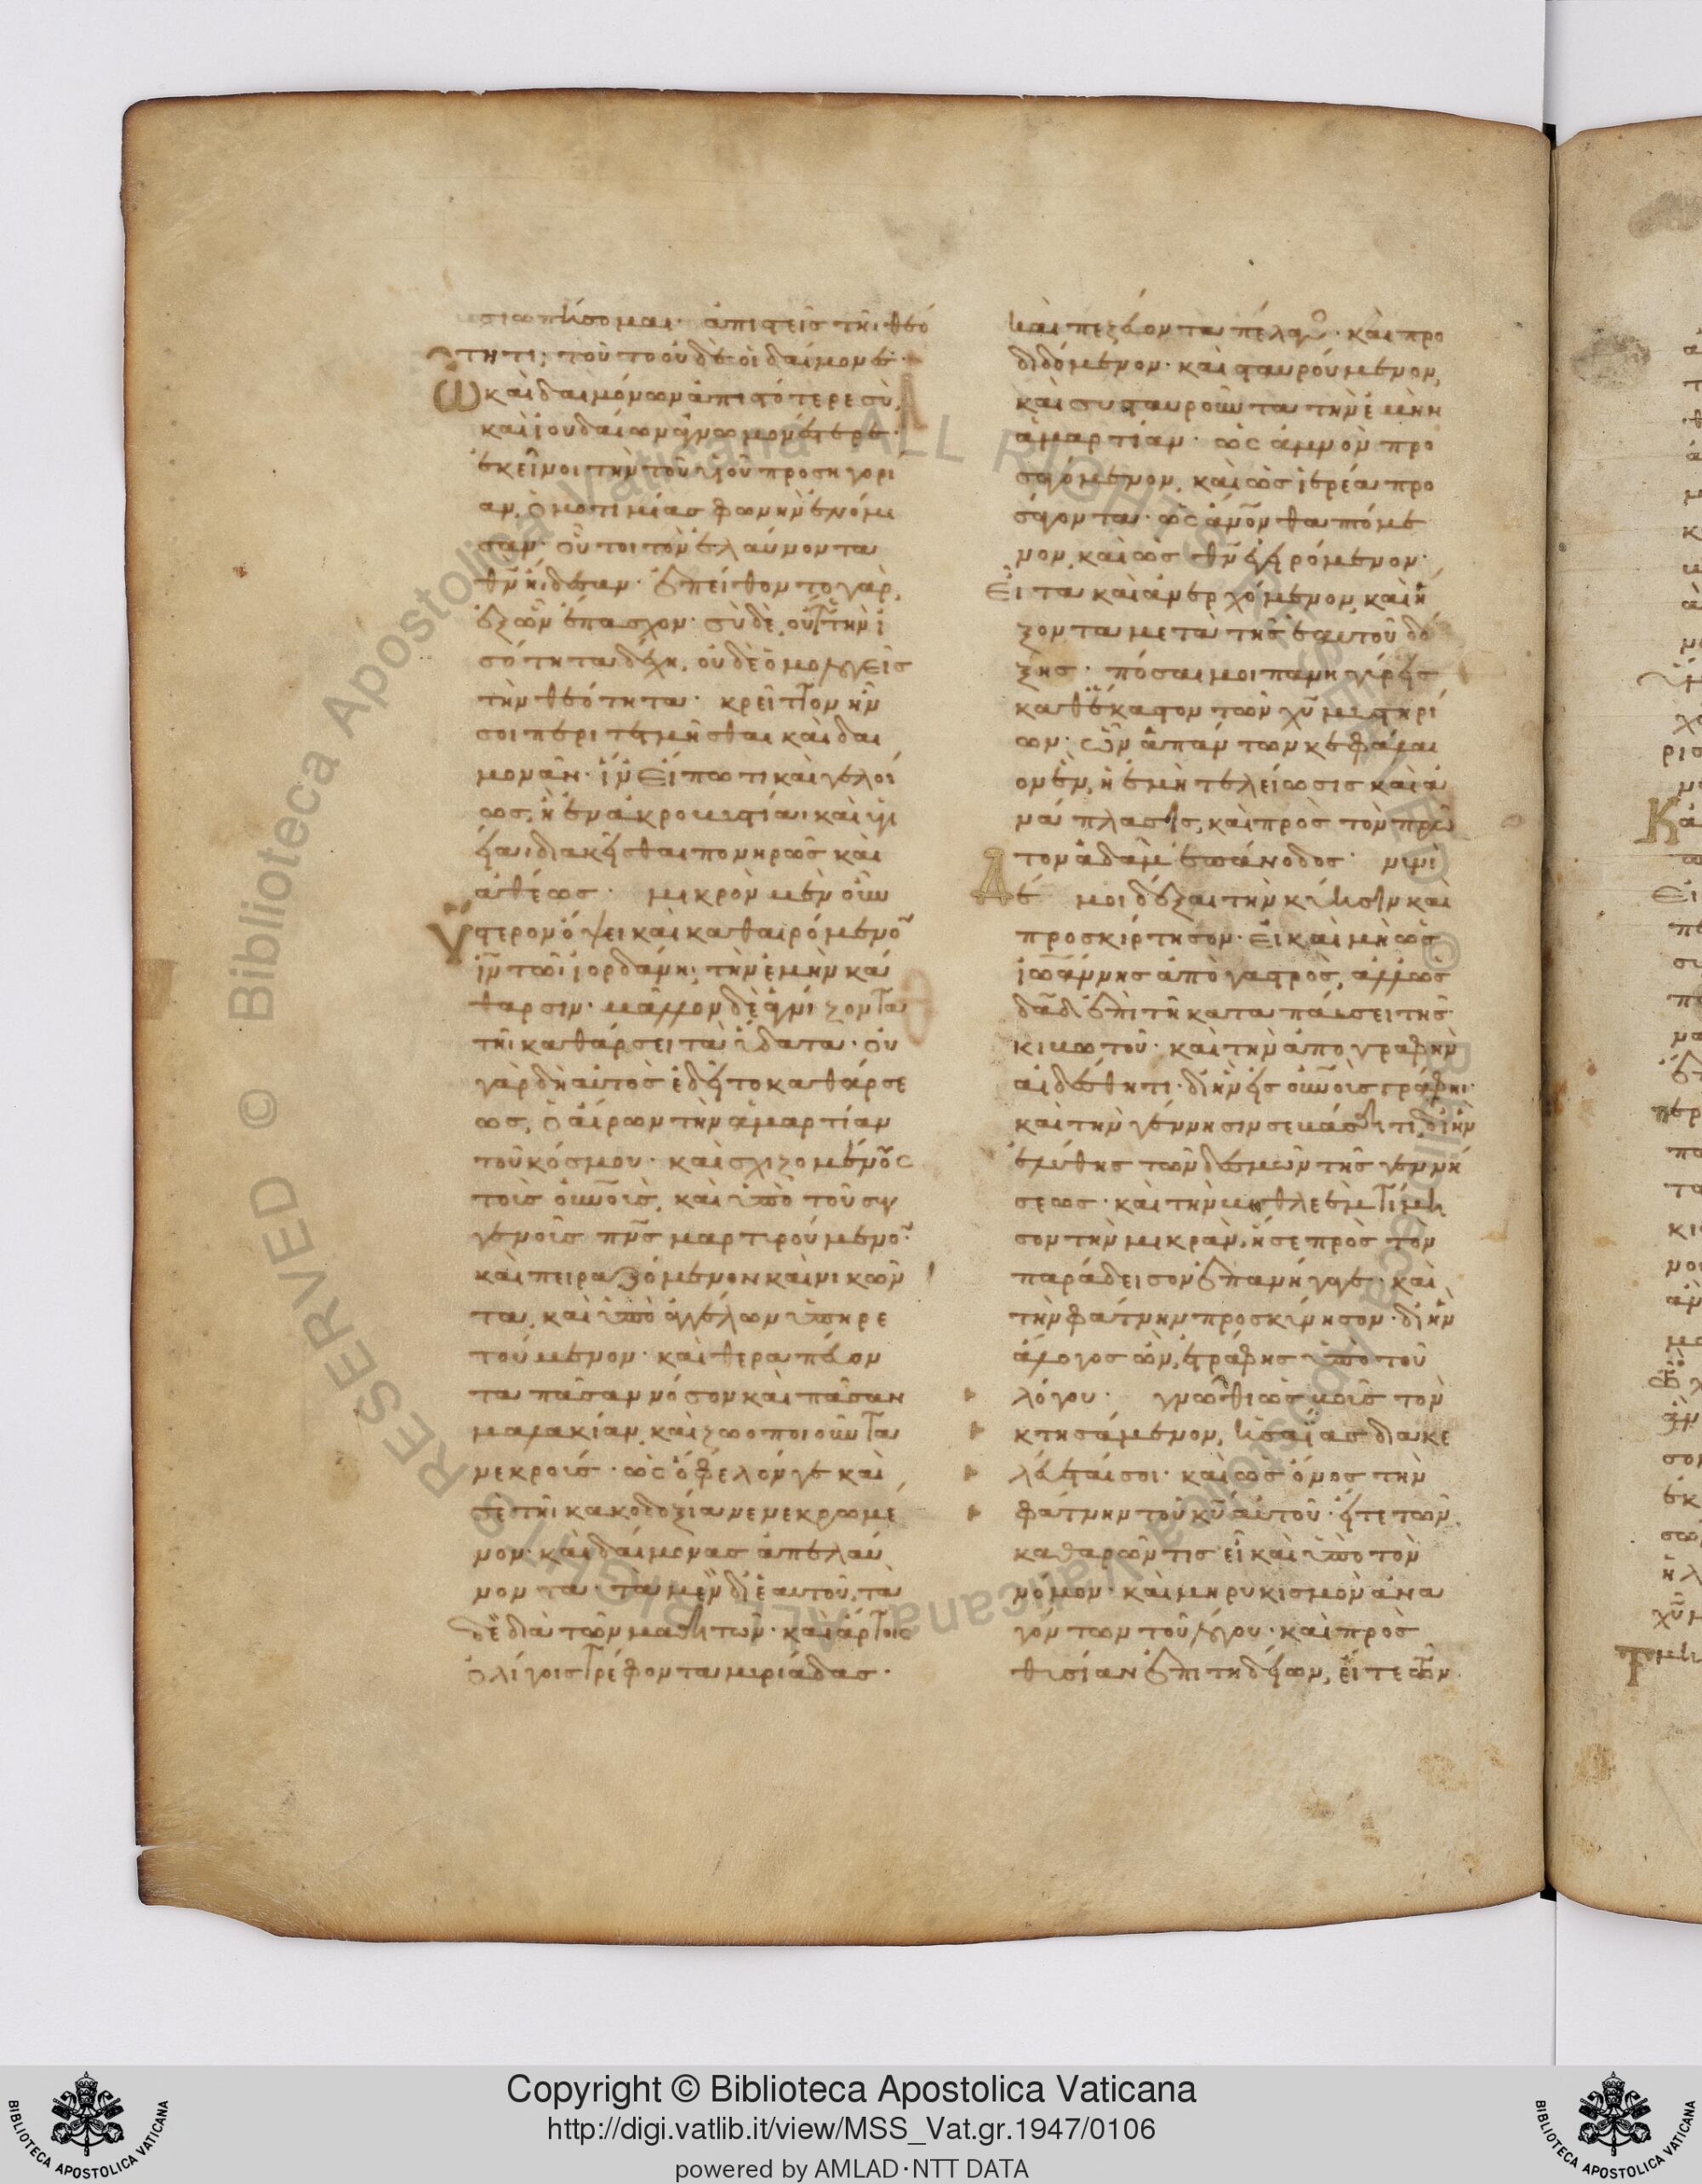 σιωπήσομαι· ἀπιστεῖς τῆι θεό
τητι; τοῦτο οὐδὲ οἱ δαίμονες·
Ὦ καὶ δαιμόνων ἀπιστότερε σὺ,
καὶ ἰουδαίων ἀγνωμονέστερε·
ἐκεῖνοι τὴν τοῦ υἱοῦ προσηγορί
αν, ὁμοτιμίας φωνὴν ἐνόμι
σαν· οὗτοι τὸν ἐλαύνοντα
θν ἤιδεσαν· ἐπείθοντο γὰρ,
ἐξ ὧν ἔπασχον· σὺ δὲ, οὔτε τὴν ἰ
σότητα δέχη, οὐδὲ ὁμολογεῖς
τὴν θεότητα· κρεῖττον ἦν
σοι περιτετμῆσθαι καὶ δαι
μονᾶν· ἵν εἴπω τι καὶ γελοί
ως, ἢ ἐν ἀκροβυστία καὶ ὑγι
εία διακεῖσθαι πονηρῶς καὶ
ἀθέως· μικρὸν μὲν οὖν
Ὕστερον ὄψει καὶ καθαιρόμενον
ιν τῶι ἰορδάνη, τὴν ἐμὴν κά
θαρσιν· μᾶλλον δὲ ἁγνίζοντα
τῆι καθάρσει τὰ ὕδατα· οὐ
γὰρ δὴ αὐτὸς ἐδεῖτο καθάρσε
ως, ὁ αἴρων τὴν ἁμαρτίαν
τοῦ κόσμου· καὶ σχιζομένους
τοὺς οὐνοὺς, καὶ ὑπὸ τοῦ συγ
γενοῦς πνς μαρτυρούμενον·
καὶ πειραζόμενον καὶ νικῶν
τα, καὶ ὑπὸ ἀγγέλων ὑπηρε
τούμενον· καὶ θεραπεύον
τα πᾶσαν νόσον καὶ πᾶσαν
μαλακίαν, καὶ ζωοποιοῦντα
νεκρούς· ὡς ὄφελόν γε καὶ
σὲ τῆι κακοδοξία νενεκρωμέ
νον· καὶ δαίμονας ἀπελαύ
νοντα· τὰ μὲν δι ἑαυτοῦ, τὰ
δὲ διὰ τῶν μαθητῶν· καὶ ἄρτοις
ὀλίγοις τρέφοντα μυριάδας·
καὶ πεζεύοντα πέλαγος· καὶ προ
διδόμενον· καὶ σταυρούμενον,
καὶ συσταυροῦντα τὴν ἐμὴν
ἁμαρτίαν· ὡς ἀμνὸν προ
σαγόμενον, καὶ ὡς ἱερέα προ
σάγοντα· ὡς ἄνον θαπτόμε
νον, καὶ ὡς θν ἐγειρόμενον·
Εἶτα καὶ ἀνερχόμενον, καὶ ἥ
ξοντα μετὰ τῆς ἑαυτοῦ δό
ξης· πόσαι μοι πανηγύρεις
καθ ἕκαστον τῶν χυ μυστηρί
ων· ὧν ἁπάντων κεφάλαι
ον ἓν, ἡ ἐμὴ τελείωσις καὶ ἀ
νάπλασις, καὶ πρὸς τὸν πρῶ
τον ἀδὰμ ἐπάνοδος· νυνὶ
Δέ μοι δέξαι τὴν κύησιν καὶ
προσκίρτησον· εἰ καὶ μὴ ὡς
ἰωάννης ἀπὸ γαστρὸς, ἀλλ ὡς
δαδ ἐπὶ τῆ καταπαύσει τῆς
κιβωτοῦ· καὶ τὴν ἀπογραφὴν
αἰδέσθητι· δι ἣν εἰς οὐνοὺς ἐγράφης·
καὶ τὴν γέννησιν σεβάσθητι, δι ἣν
ἐλύθης τῶν δεσμῶν τῆς γεννή
σεως· καὶ τὴν βηθλεὲμ τίμη
σον τὴν μικρὰν, ἥ σε πρὸς τὸν
παράδεισον ἐπανήγαγε· καὶ
τὴν φάτνην προσκύνησον· δι ἣν
ἄλογος ὢν, ἐτράφης ὑπὸ τοῦ
λόγου· γνῶθι ὡς βοῦς τὸν
κτησάμενον, ἡσαΐας διακε
λεύεταί σοι· καὶ ὡς ὄνος τὴν
φάτνην τοῦ κυ αὐτοῦ· εἴτε τῶν
καθαρῶν τις εἶ καὶ ὑπὸ τὸν
νόμον· καὶ μηρυκισμὸν ἀνα
γόντων τοῦ λόγου· καὶ πρὸς
θυσίαν ἐπιτηδείων, εἴτε τῶν
Copyright © Biblioteca Apostolica Vaticana
http://digi.vatlib.it/view/MSS_Vat.gr.1947/0106
powered by AMLAD·NTT DATA
BIBLIOTECA APOSTOLICA VATICANA
BIBLIOTECA APOSTOLICA VATICANA